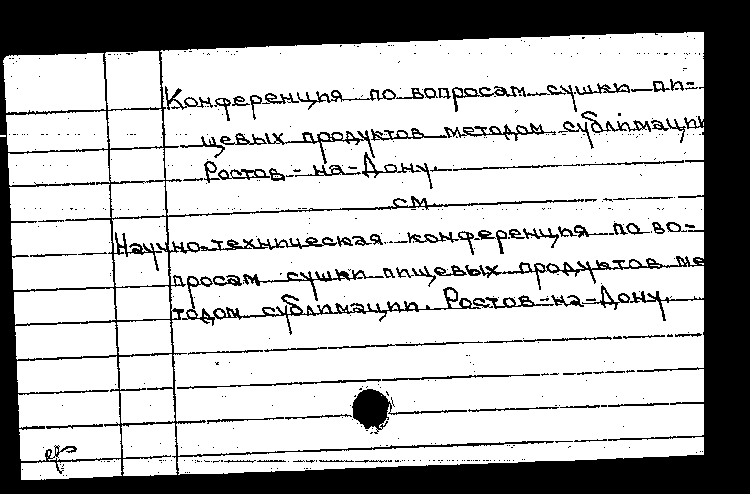 Конференция по вопросам сушки пи-
щевых продуктов методом сублимации
Ростов-на-Дону.
см.
Научно-техническая конференция по во-
просам сушки пищевых продуктов ме
тодом сублимации. Ростов-на-Дону.